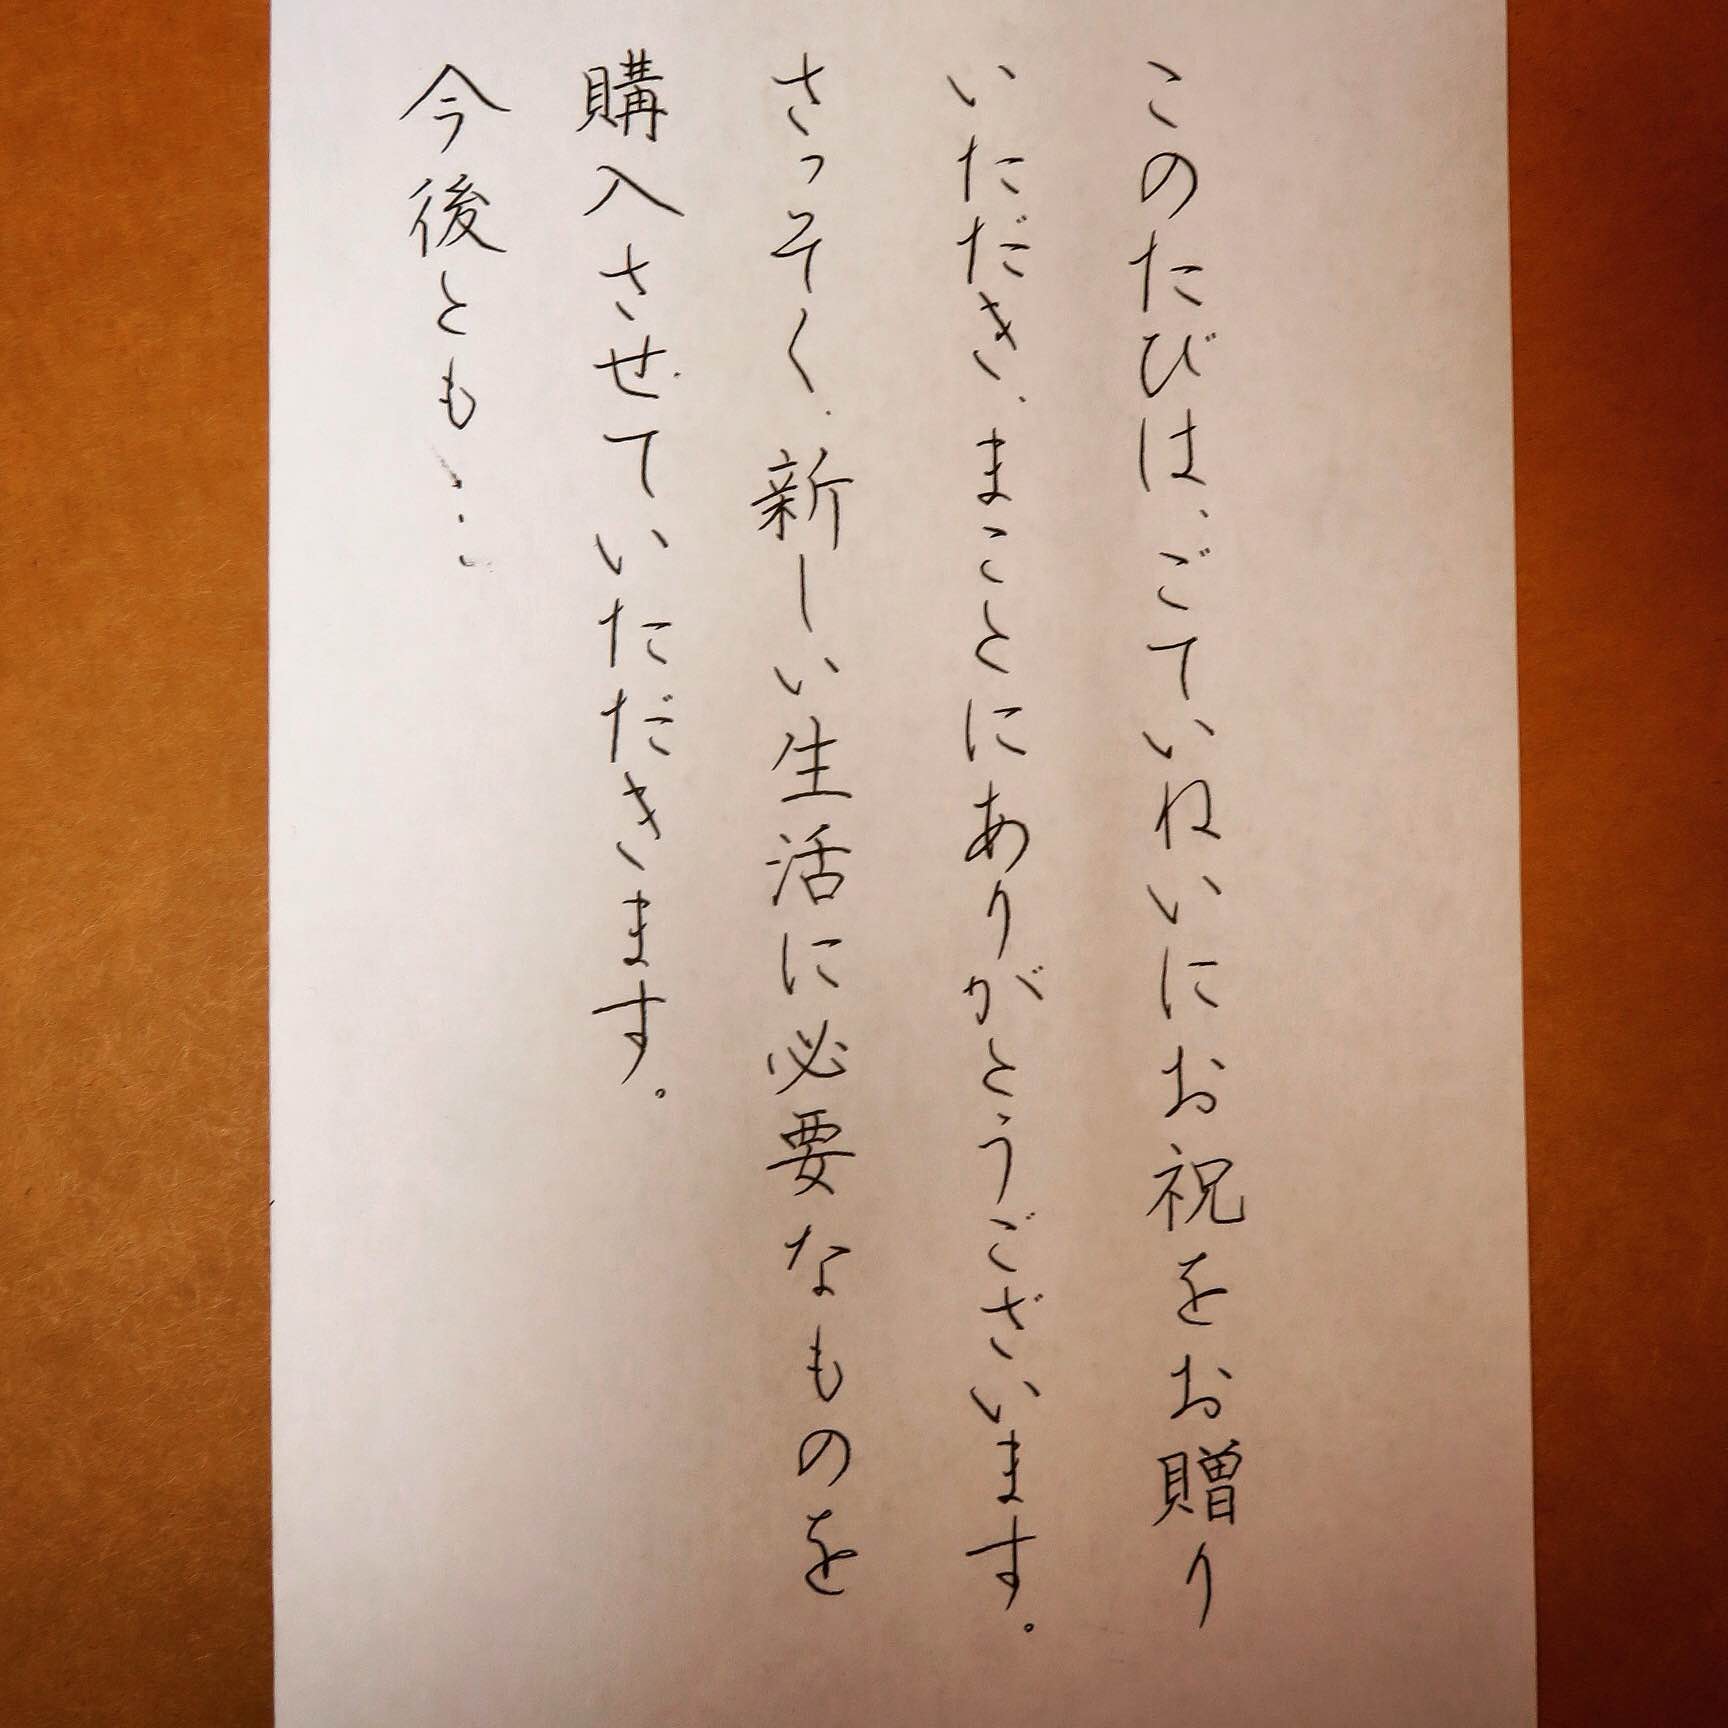 このたびは、ごていねいにお祝をお贈り
いただき、まことにありがとうございます。
さっそく、新しい生活に必要なものを
購入させていただきます。
今後とも…